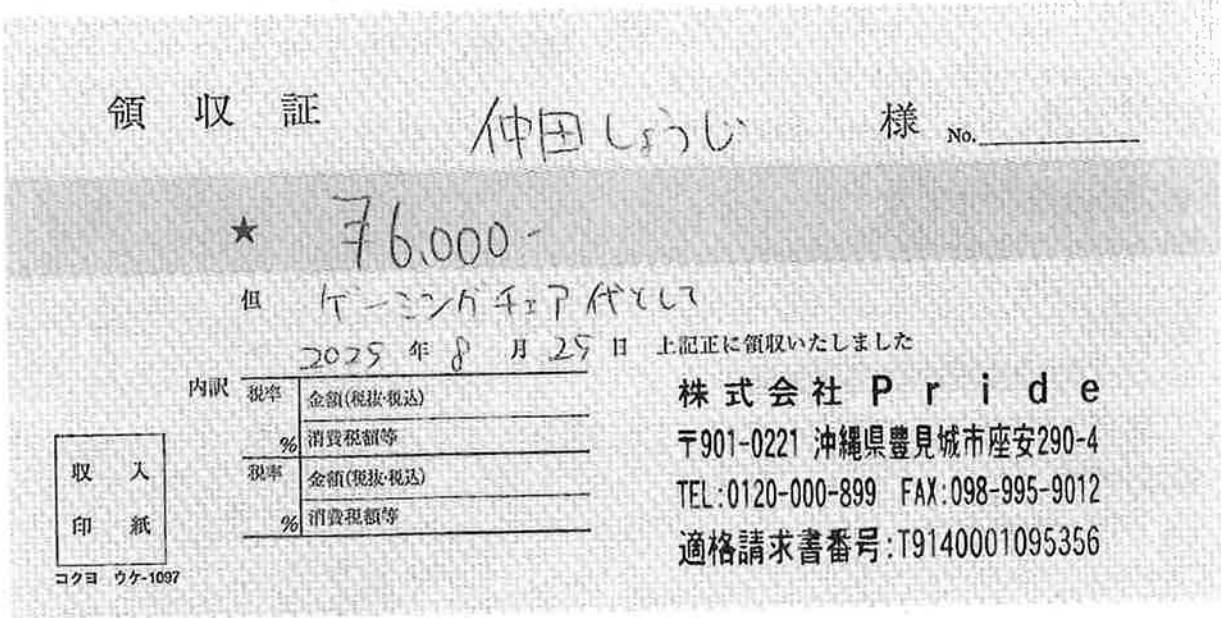 領収証 仲田しょうじ 様 No.
★ ¥6,000-
但 ゲーミングチェア代として
2025 年 8 月 25 日 上記正に領収いたしました
内訳 税率 金額(税抜・税込)
% 消費税額等
税率 金額(税抜・税込)
% 消費税額等
収入
印紙
コクヨ ウケ-1097
株式会社Pride
〒901-0221 沖縄県豊見城市座安290-4
TEL:0120-000-899 FAX:098-995-9012
適格請求書番号:T9140001095356